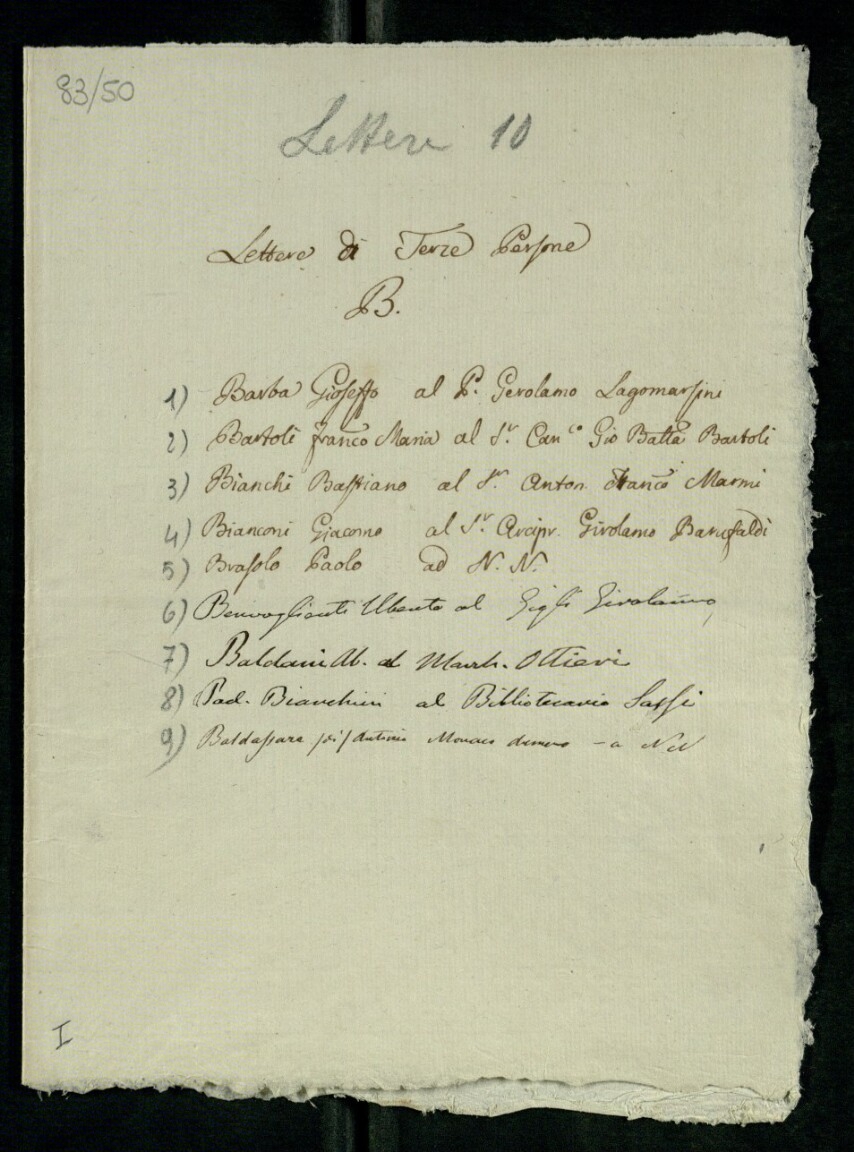 83/50
Lettere 10
Lettere di Terze Persone
B.
1) Barba Gioseffo al P. Gerolamo Lagomarsini
2) Bartoli Franco Maria al Sr. Canco Gio Batta Bartoli
3) Bianchi Bastiano al Sr. Anton Franco Marmi
4) Bianconi Giacomo al Sr. Arcipr. Girolamo Baruffaldi
5) Brasolo Paolo ad N. N.
6) Benvoglienti Uberto al Gigli Girolamo
7) Baldani Ab. al March. Ottieri
8) Pad. Bianchini al Bibliotecario Sassi
9) Baldassare Antonio Monaco - a NN
I